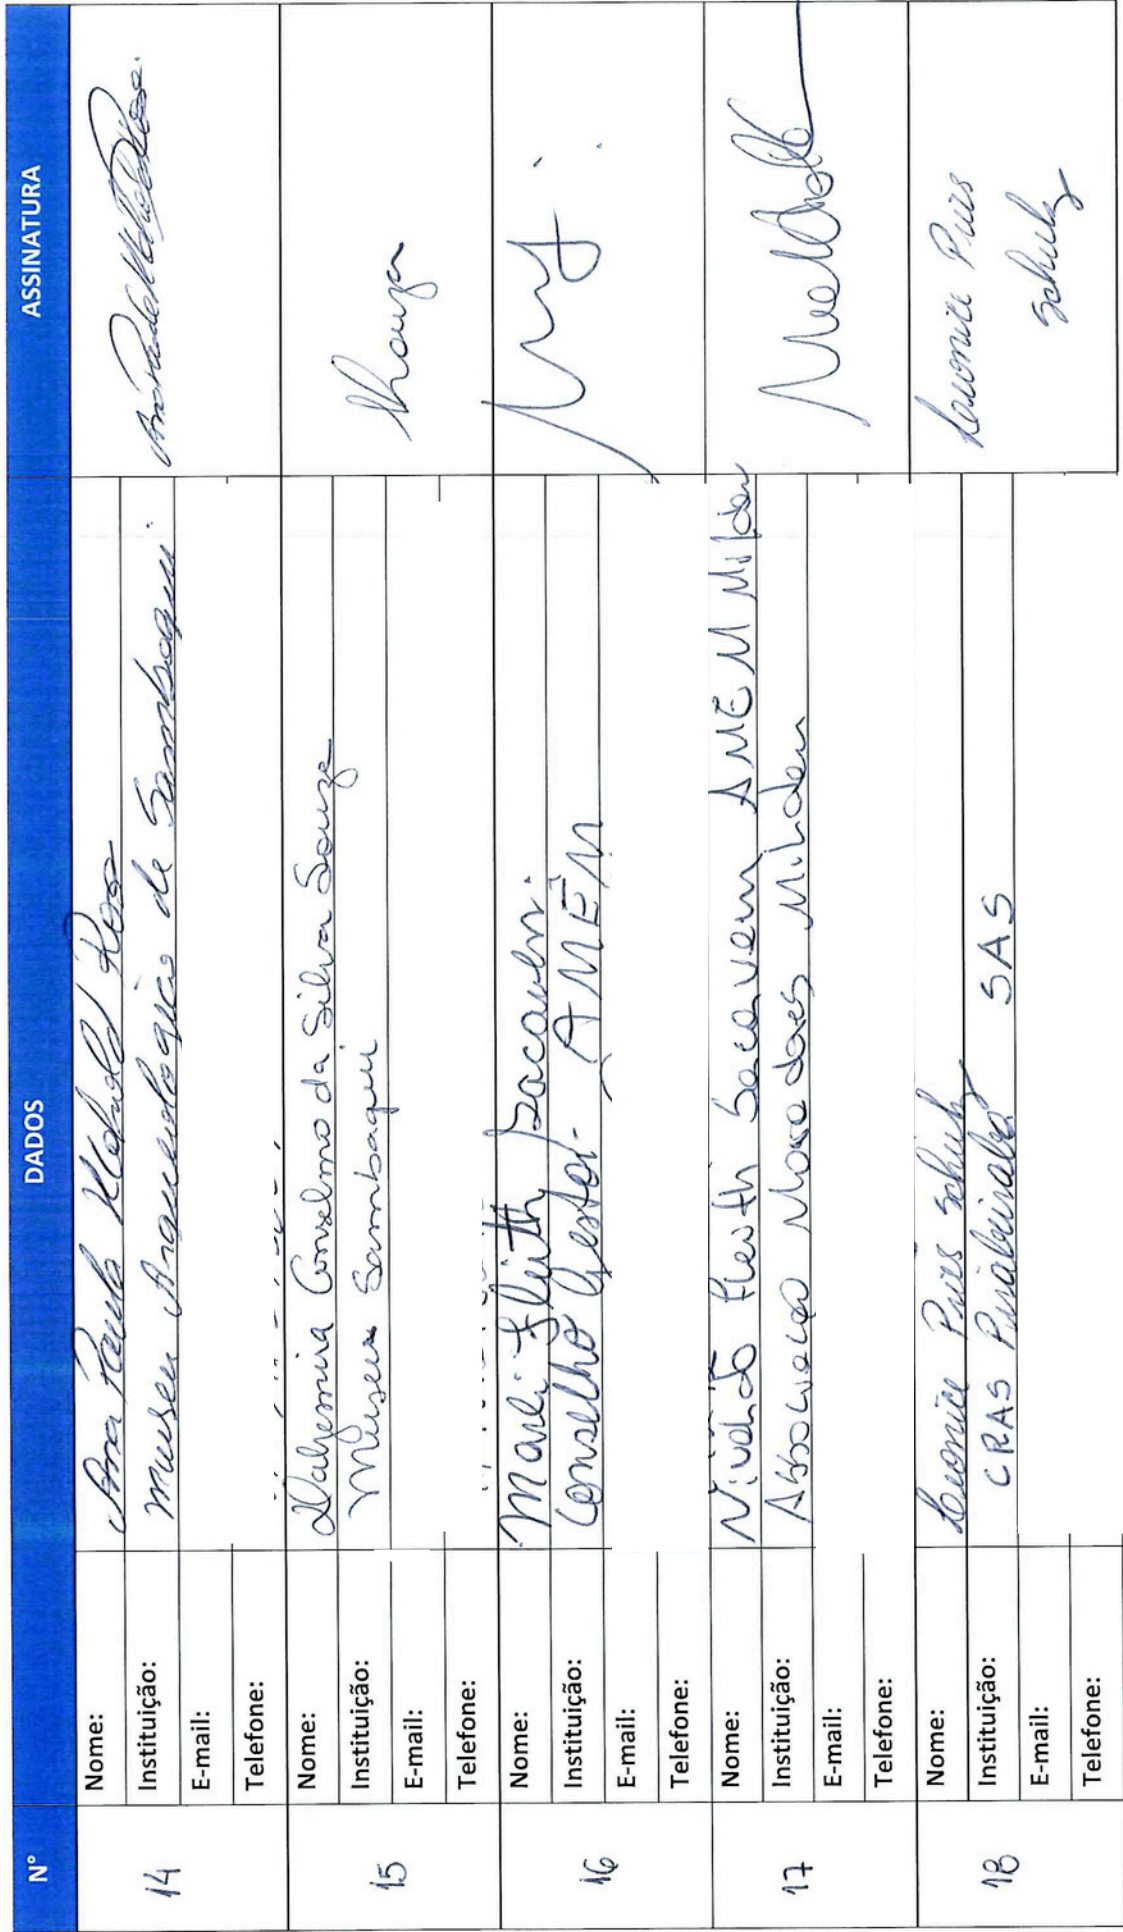 N° DADOS ASSINATURA
14
Nome: Ana Paula Rosa
Instituição: Museu Arqueológico de Sambaqui.
E-mail:
Telefone:
15
Nome: Valgemira Conselmo da Silva Souza
Instituição: Museu Sambaqui
E-mail:
Telefone:
16
Nome: Marli Fleith Sacavem.
Instituição: Conselho Gestor - AMEM
E-mail:
Telefone:
17
Nome: Nivaldo Fleith Sacavem AMEM Milden
Instituição: Associacao Moradores Milden
E-mail:
Telefone:
18
Nome: Leonice Pires Schulz
Instituição: CRAS Pirabeiraba SAS
E-mail:
Telefone:
Leonice Pires
Schulz